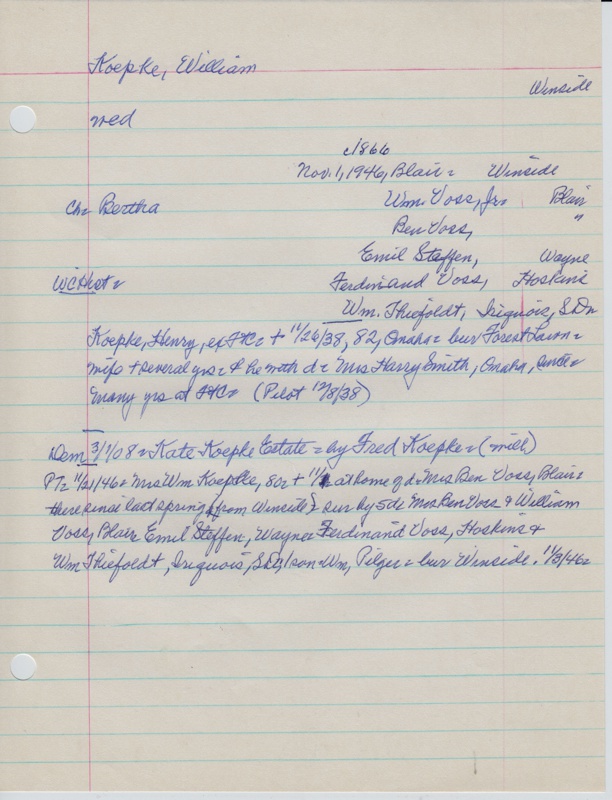 Koepke, William
Winside
med
c/1866
Nov. 1, 1946, Blair = Winside
Ch = Bertha Wm. Voss, Jr = Blair
Ben Voss, "
Emil Steffen, Wayne
WCHist = Ferdinand Voss, Hoskins
Wm. Thiefoldt, Iriquois, S.D.
Koepke, Henry, + 11/26/38, 82, Omaha = bur Forest Lawn =
wife + several yrs = & he with d = Mrs Harry Smith, Omaha,
many yrs at (Pilot 12/8/38)
Dem 3/1/08 = Kate Koepke Estate = by Fred Koepke = (will)
Mrs Wm Koepke, 80 = + at home of d = Mrs Ben Voss, Blair =
there since last spring (from Winside) sur by 5 d = Mrs Ben Voss & William
Voss, Blair Emil Steffen, Wayne = Ferdinand Voss, Hoskins &
Wm Thiefoldt, Iriquois, S.D., 1 son = Wm, Pilger = bur Winside. 11/3/46 =